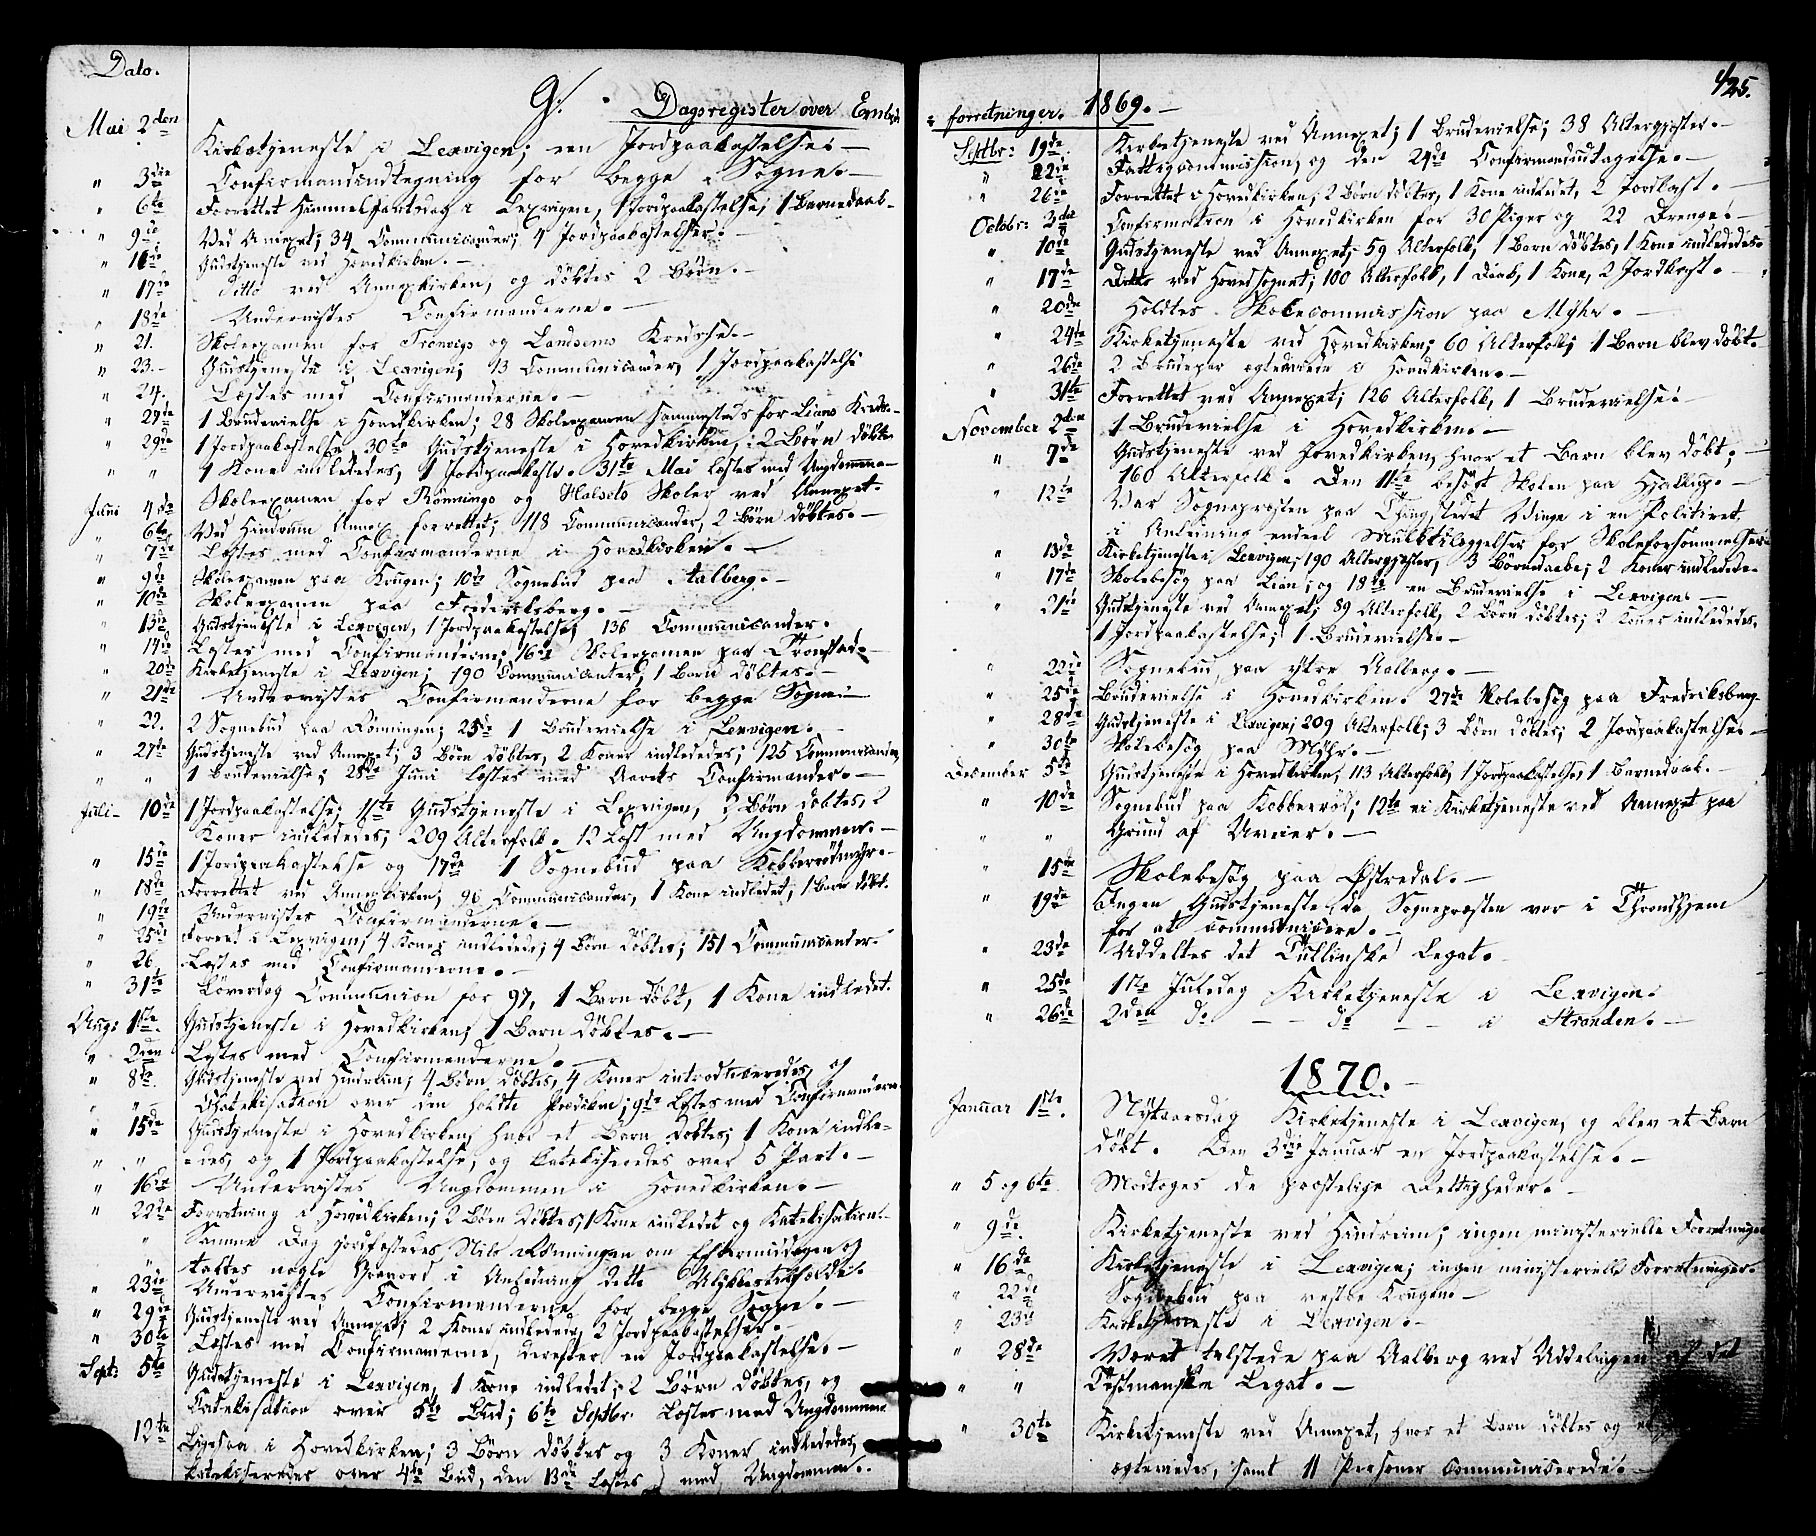 Dato.
G. Dagsregister over Embeds
Mai 2den Kirketjeneste i Lexvigen; een Jordpaakastelse.
" 3die Confirmandindtegning for begge Sogne.
" 6te Forrettet Himmelfartsdag i Lexvigen, 1 Jordpaakastelse; 1 Barnedaab.
" 9de Ved Annexet; 34 Communicander; 4 Jordpaakastelser.
" 16de Gudstjeneste ved Hovedkirken.
" 17de ditto ved Annexkirken, og döbtes 2 Börn.
" 18de Undervistes Confirmanderne.
" 21. Skoleexamen for Trönvigs og Landsems Kredse.
" 23. Gudstjeneste i Lexvigen; 13 Communicander, 1 Jordpaakastelse
" 24. Læstes med Confirmanderne.
" 29de 1 Brudevielse i Hovedkirken; 28 Skoleexamen sammesteds for Liams Kreds.
" 29de 1 Jordpaakastelse, 30te Gudstjeneste i Hovedkirken, 2 Börn döbtes
" " 1 Kone indlededes, 1 Jordpaakast. 31te Mai læstes med Ungdommen
Juni 4de Skoleexamen for Rönnings og Halsets Skoler ved Annexet.
" 6te Ved Hindrum Annex forrettet; 118 Communicander, 2 Börn döbtes.
" 7de Læstes med Confirmanderne i Hovedkirken.
" 9de Skoleexamen paa Kougen; 10de Sognebud paa Aalberg.
" 10de Skoleexamen paa Frederiksberg.
" 13de Gudstjeneste i Lexvigen, 1 Jordpaakastelse; 136 Communicander.
" 14de Læstes med Confirmanderne; 16de Skoleexamen paa Grönstad.
" 20de Kirketjeneste i Lexvigen; 190 Communicanter, 1 Barn döbtes.
" 21de Undervistes Confirmanderne for begge Sogne
" 22. 2 Sognebud paa Rönningen; 25de 1 Brudevielse i Lexvigen.
" 27de Gudstjeneste ved Annexet; 3 Börn döbtes, 2 Koner indlededes; 125 Communicander,
" " 1 Brudevielse; 28de Juni læstes med Aarets Confirmander.
Juli 10de 1 Jordpaakastelse; 11te Gudstjeneste i Lexvigen, 2 Börn döbtes, 2
Koner indlededes; 209 Alterfolk. 12 Læst med Ungdommen.
" 15de 1 Jordpaakastelse og 17de 1 Sognebud paa Kobberrödmyr.
" 18de Forrettet ved Annexkirken, 96 Communicander, 1 Kone indledet; 1 Barn döbt.
" 19de Undervistes Confirmanderne.
" 25de Forrett. i Lexvigen, 4 Koner indledede; 4 Börn döbtes; 151 Communicander.
" 26 Læstes med Confirmanderne.
" 31te Löverdag Communion for 97, 1 Barn döbt, 1 Kone indledet.
Aug: 1ste Gudstjeneste i Hovedkirken; 1 Barn döbtes.
" 2den Læstes med Confirmanderne.
" 8de Gudstjeneste ved Hindrem; 4 Börn döbtes, 4 Koner introduceredes, og
" " Chatekisation over den holdte Prædiken; 9de læstes med Confirmanderne
" 15de Gudstjeneste i Hovedkirken, hvor et Barn döbtes; 1 Kone indle-
" " =des, og 1 Jordpaakastelse, og katekiseredes over 5 Part.
" 16de Undervistes Ungdommen i Hovedkirken.
" 22de Forretning i Hovedkirken; 2 Börn döbtes; 1 Kone indledet og Katekisation.
" Samme Dag jordfæstedes Nils Rönningen om Eftermiddagen og
taltes nogle Gravord i Anledning dette Ulykkestilfælde.
" 23de Undervistes Confirmanderne for begge Sogne.
" 29de Gudstjeneste ved Annexet; 2 Koner indledede, 2 Jordpaakastelser.
" 30te Læstes med Confirmanderne, derefter en Jordpaakastelse.
Sept: 5te Gudstjeneste i Lexvigen, 1 Kone indledet; 2 Börn döbtes, og
Catekisation over 5te Bud; 6te Septbr. læstes med Ungdommen
12te Ligesaa i Hovedkirken; 3 Börn döbtes og 3 Koner indlededes,
katekiseredes over 4de Bud, den 13de læstes med Ungdommen.
425.
= forretninger. 1869.
Septbr: 19de Kirketjeneste ved Annexet; 1 Brudevielse; 38 Altergjæster.
" 22de Fattigcommission, og den 24de Confirmandudtagelse.
" 26de Forrettet i Hovedkirken, 2 Börn döbtes, 1 Kone indledet, 2 Jordkast.
Octobr: 3die Confirmation i Hovedkirken for 30 Piger og 22 Drenge.
" 10de Gudstjeneste ved Annexet; 59 Alterfolk, 1 Barn döbtes, 1 Kone indlededes.
" 17de Ditto ved Hovedsognet; 100 Alterfolk, 1 Daab, 1 Kone, 2 Jordkast.
" 20de Holdtes Skolecommission paa Myhr.
" 24de Kirketjeneste ved Hovedkirken; 60 Alterfolk; 1 Barn blev döbt.
" 26de 2 Brudepar ægteviede i Hovedkirken.
" 31te Forrettet ved Annexet; 126 Alterfolk, 1 Brudevielse.
November 2den 1 Brudevielse i Hovedkirken.
" 7de Gudstjeneste ved Hovedkirken, hvor et Barn blev döbt;
160 Alterfolk. Den 11te besögt Skolen paa Hjellup.
" 12te Var Sognepræsten paa Thingstedet Vinge i en Politiret
i Anledning endeel Mulktilæggelser for Skoleforsömmelser.
" 13de Kirketjeneste i Lexvigen, 190 Altergjæster, 3 Börnedaabe; 2 Koner indledede.
" 17de Skolebesög paa Lein; og 18de en Brudevielse i Lexvigen.
" 21de Gudstjeneste ved Annexet; 89 Alterfolk, 2 Börn döbtes; 2 Koner indlededes,
1 Jordpaakastelse; 1 Brudevielse.
" 22de Sognebud paa ytre Aalberg.
" 25de Brudevielse i Hovedkirken. 27de Skolebesög paa Fredriksberg.
" 28de Gudstjeneste i Lexvigen; 209 Alterfolk; 3 Börn döbtes; 2 Jordpaakastelser.
" 30te Skolebesög paa Myhr.
December 5de Gudstjeneste i Hovedkirken, 113 Alterfolk, 1 Jordpaakastelse, 1 Barnedaab.
" 10de Sognebud paa Kobberröd; 12te ei Kirketjeneste ved Annexet paa
" " Grund af Uveier.
" 15de Skolebesög paa Östredal.
" 19de Ingen Gudstjeneste, da Sognepræsten var i Throndhjem
for at communicere.
" 23de Uddeltes det Tullinske Legat.
" 25de 1ste Juledag Kirketjeneste i Lexvigen.
" 26de 2den do do i Stranden.
1870.
Januar 1ste. Nytaarsdag Kirketjeneste i Lexvigen, og blev et Barn
döbt. Den 3die Januar en Jordpaakastelse.
" 5 og 6te Modtoges de præstelige Rettigheder.
" 9de. Kirketjeneste ved Hindrem; ingen ministerielle Forretninger
" 16de Kirketjeneste i Lexvigen; ingen ministerielle Forretninger.
" 22de Sognebud paa vestre Kougen.
" 23de Kirketjeneste i Lexvigen.
" 28de Været tilstede paa Aalberg ved Uddelingen af det
" " Testmanske Legat.
" 30te Kirketjeneste ved Annexet, hvor et Barn döbtes og et
ægteviedes, samt 11 Personer communicerede.